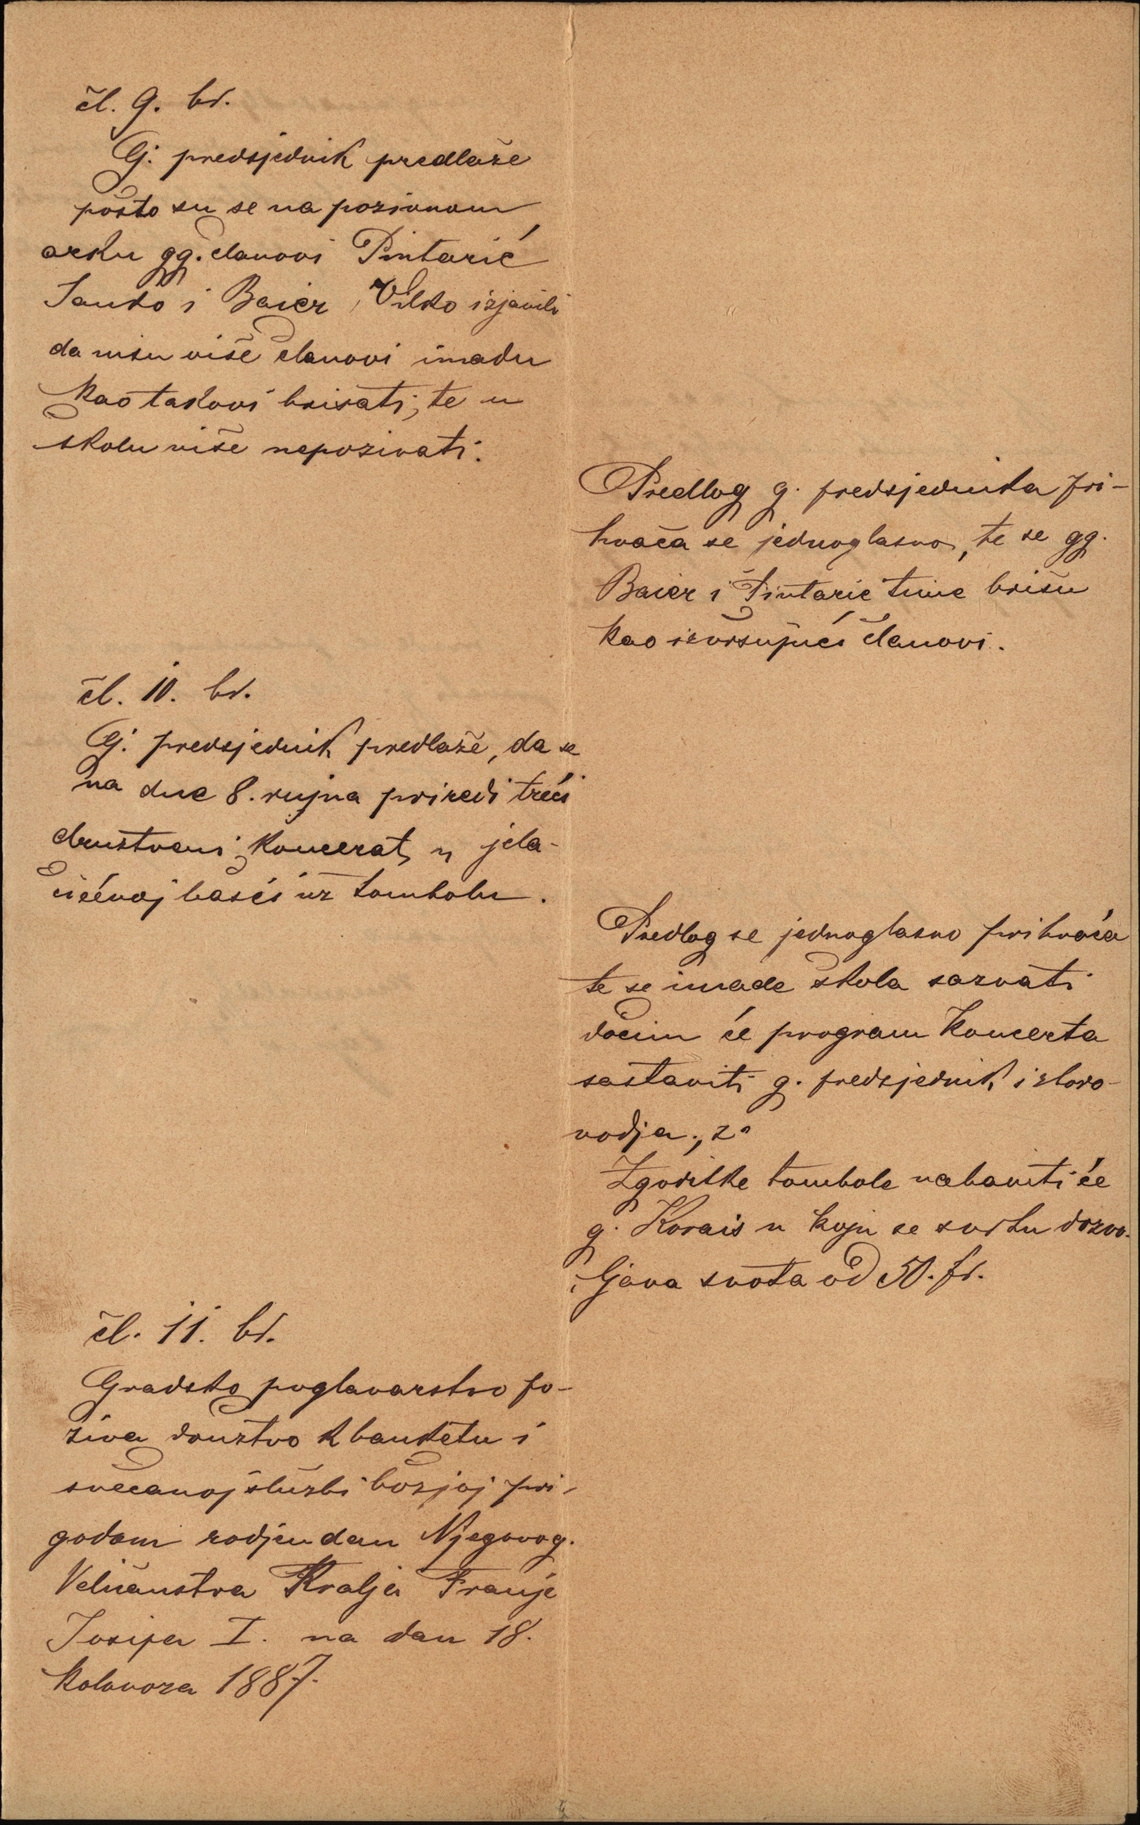 čl. 9. br.
Gj. predsjednik predlaže
pošto su se na pozivnom
arku gg. članovi Pintarić
Janko i Baier Vilko izjavili
da nisu više članovi imadu
kao takovi brisati, te u
školu više nepozivati.
Predlog g. predsjednika pri-
hvaća se jednoglasno, te se gg.
Baier i Pintarić time brišu
kao izvršujući članovi.
čl. 10. br.
Gj. predsjednik predlaže, da se
na dne 8. rujna priredi treći
družtveni koncerat u jela-
čićevoj bašći uz tombolu.
Predlog se jednoglasno prihvaća
te se imade škola sazvati
dočim će program koncerta
sastaviti g. predsjednik i zboro-
vodja.
Zgoditke tombole nabaviti će
g. Korais u koju se svrhu dozvo-
ljava svota od 50. fr.
čl. 11. br.
Gradsko poglavarstvo po-
živa družtvo k banketu i
svečanoj službi božjoj pri-
godom rodjendan Njegovog
Veličanstva Kralja Franje
Josipa I. na dan 18.
kolovoza 1887.